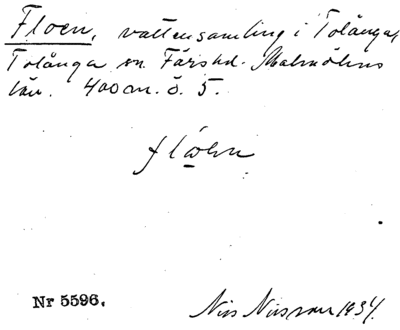 Floen, vattensamling i Tolånga,
Tolånga sn. Färs hd. Malmöhus
län. 400 m. ö. 5.
flω̱hn
Nr 5596.
Nils Nilsson 1934.